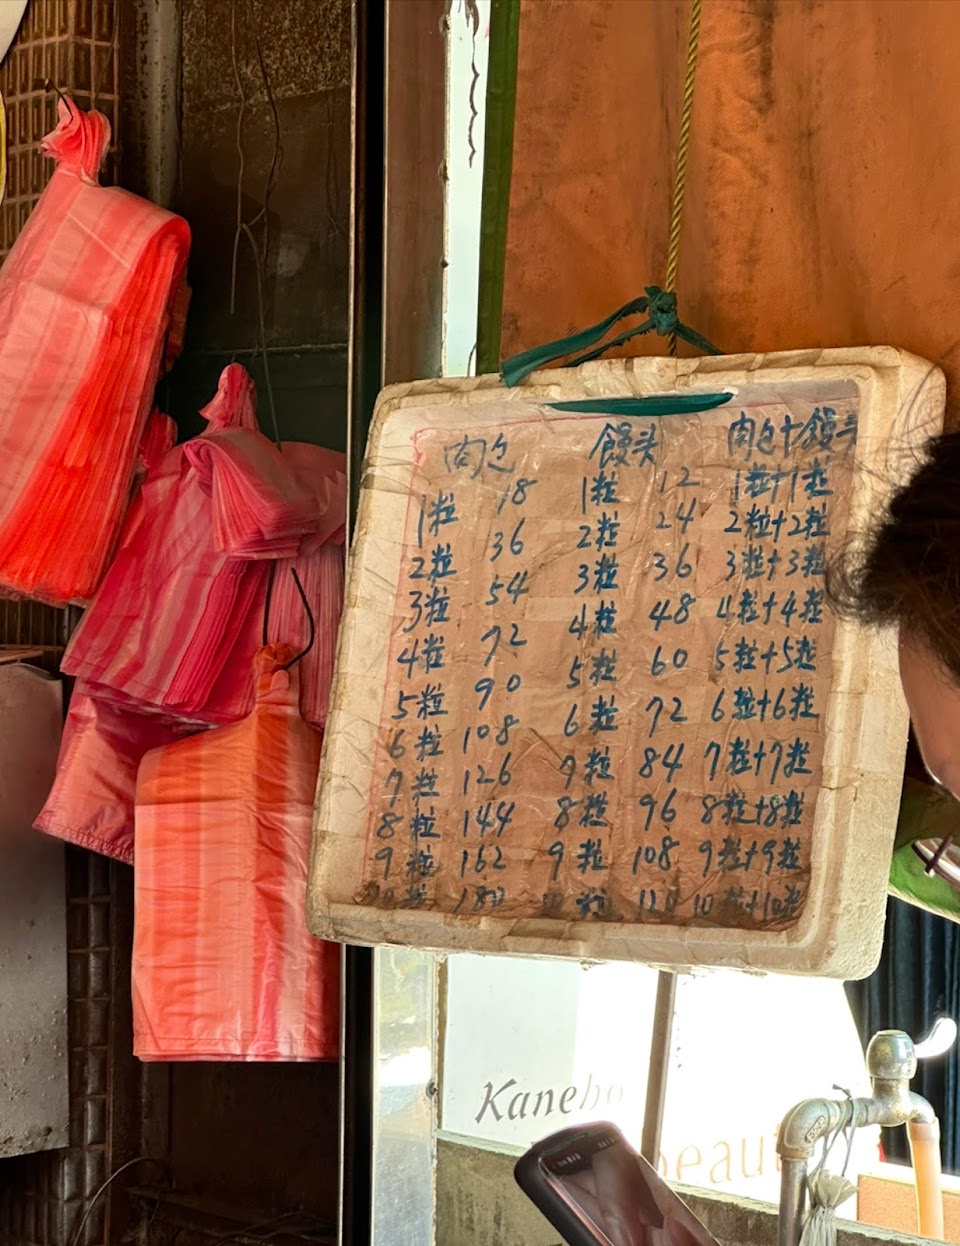 肉包 馒头 肉包+馒头
1粒 18 1粒 12 1粒+1粒
2粒 36 2粒 24 2粒+2粒
3粒 54 3粒 36 3粒+3粒
4粒 72 4粒 48 4粒+4粒
5粒 90 5粒 60 5粒+5粒
6粒 108 6粒 72 6粒+6粒
7粒 126 7粒 84 7粒+7粒
8粒 144 8粒 96 8粒+8粒
9粒 162 9粒 108 9粒+9粒
10粒 180 10粒 120 10粒+10粒
Kanebo